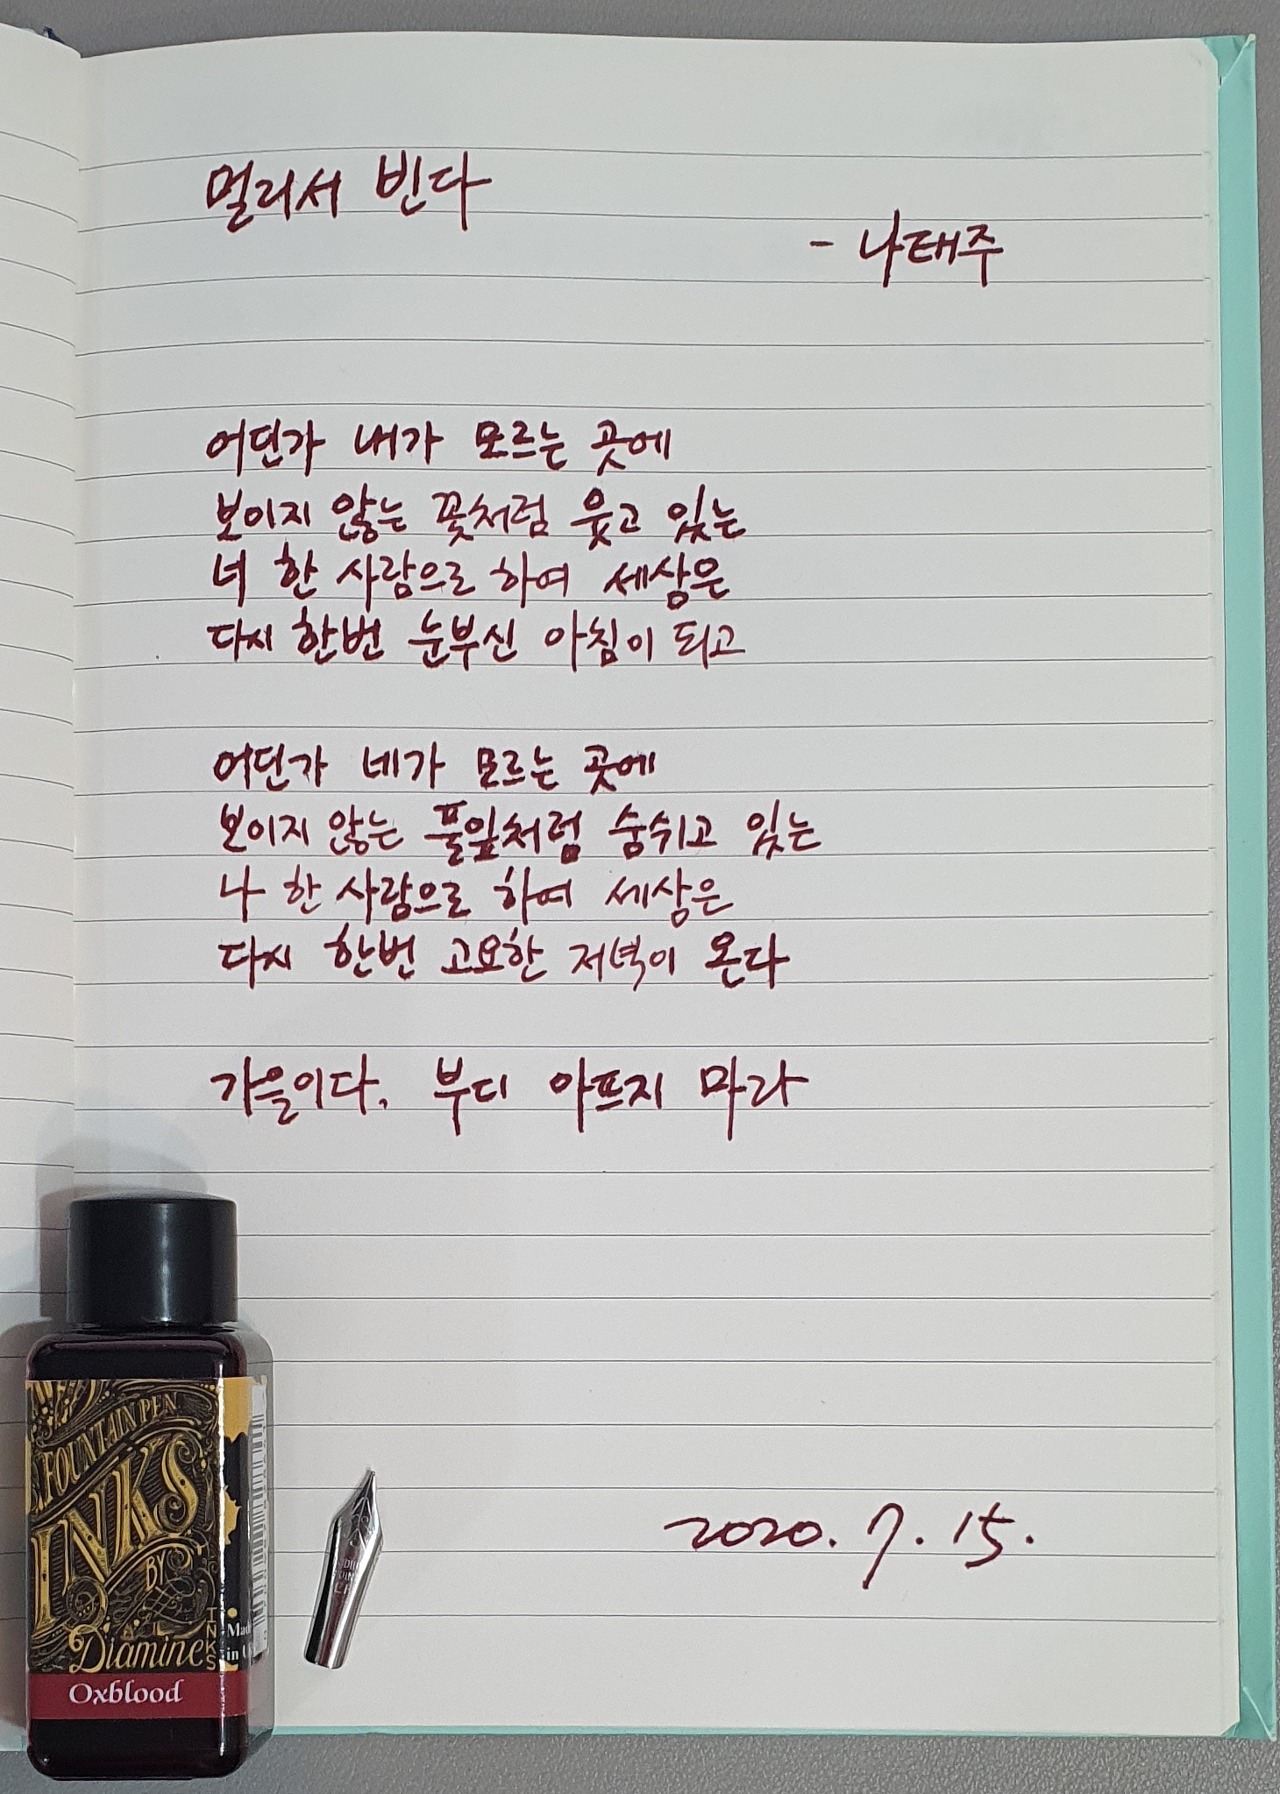 멀리서 빈다
- 나태주
어딘가 내가 모르는 곳에
보이지 않는 꽃처럼 웃고 있는
너 한 사람으로 하여 세상은
다시 한번 눈부신 아침이 되고
어딘가 네가 모르는 곳에
보이지 않는 풀잎처럼 숨쉬고 있는
나 한 사람으로 하여 세상은
다시 한번 고요한 저녁이 온다
가을이다, 부디 아프지 마라
2020. 7. 15.
FOUNTAIN PEN
INKS
BY
Diamine
INKS
Made
in U
Oxblood